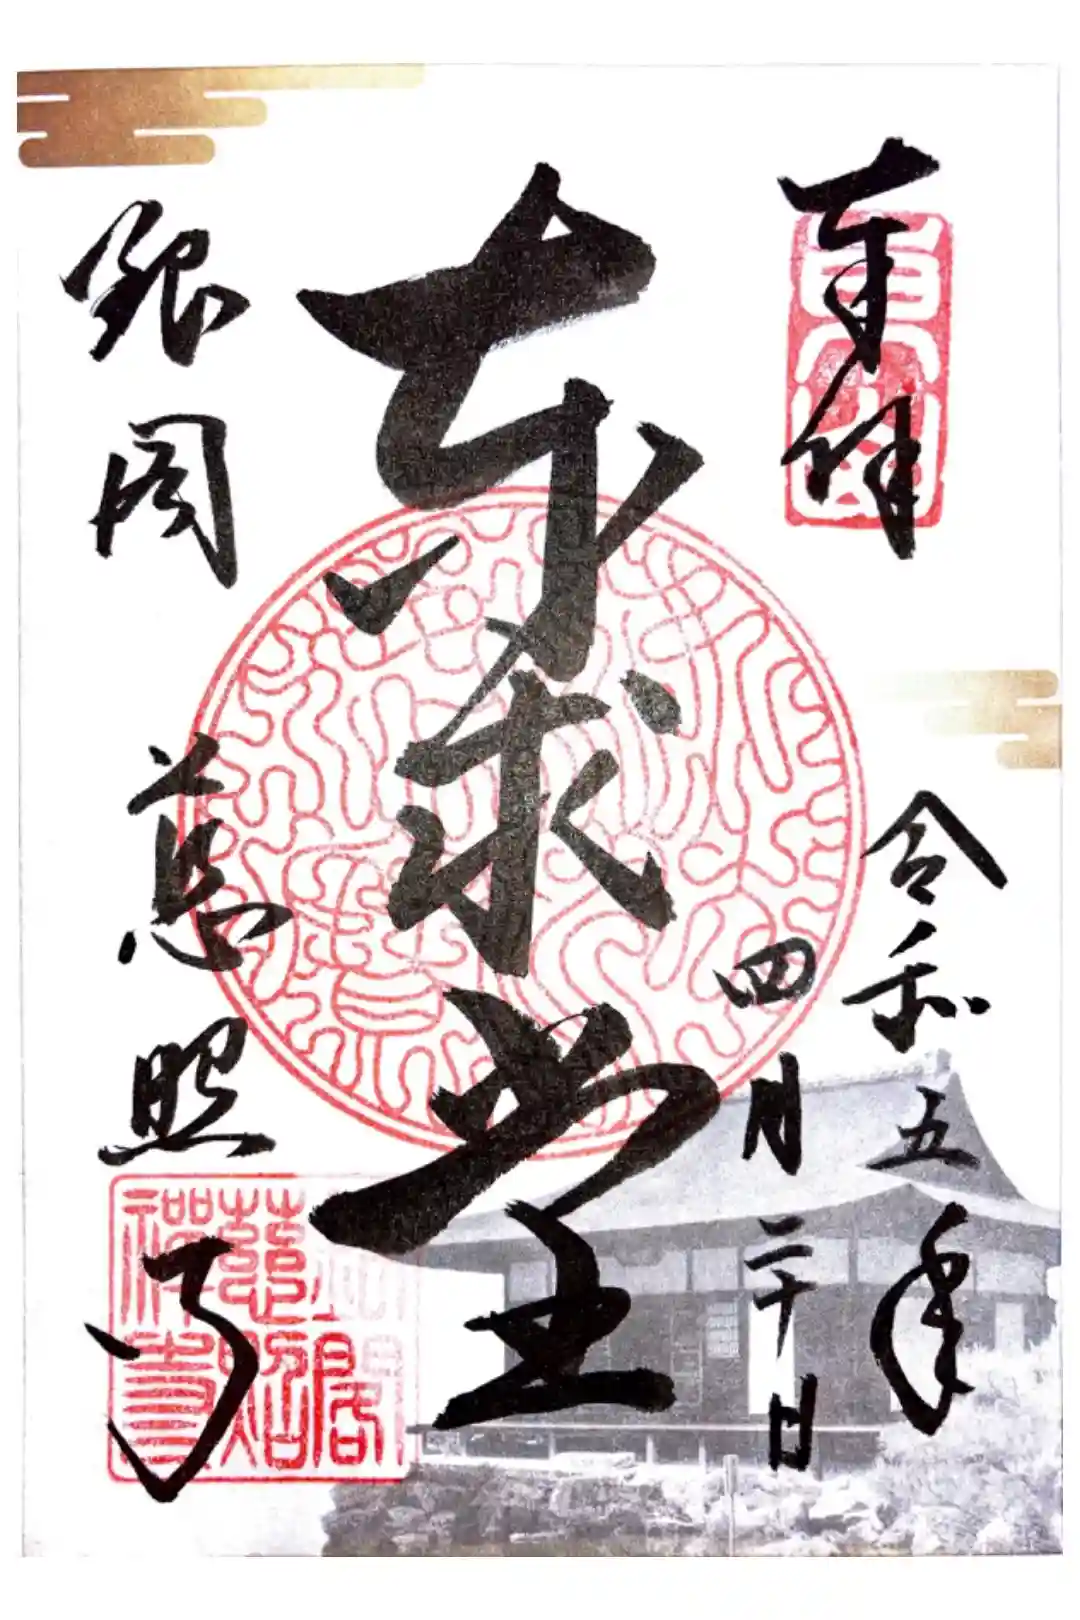 奉拝
東山
令和五年
四月二十日
東求堂
銀閣
慈照寺
銀閣
慈照
禅寺